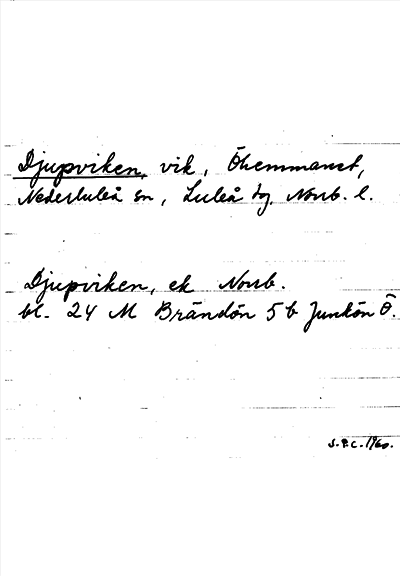 Djupviken, vik, Öhemmanet,
Nederluleå sn, Luleå tg. Norrb. l.
Djupviken, ek Norrb.
bl. 24 M Brändön 5 b Junkön Ö.
S.P.C. 1960.